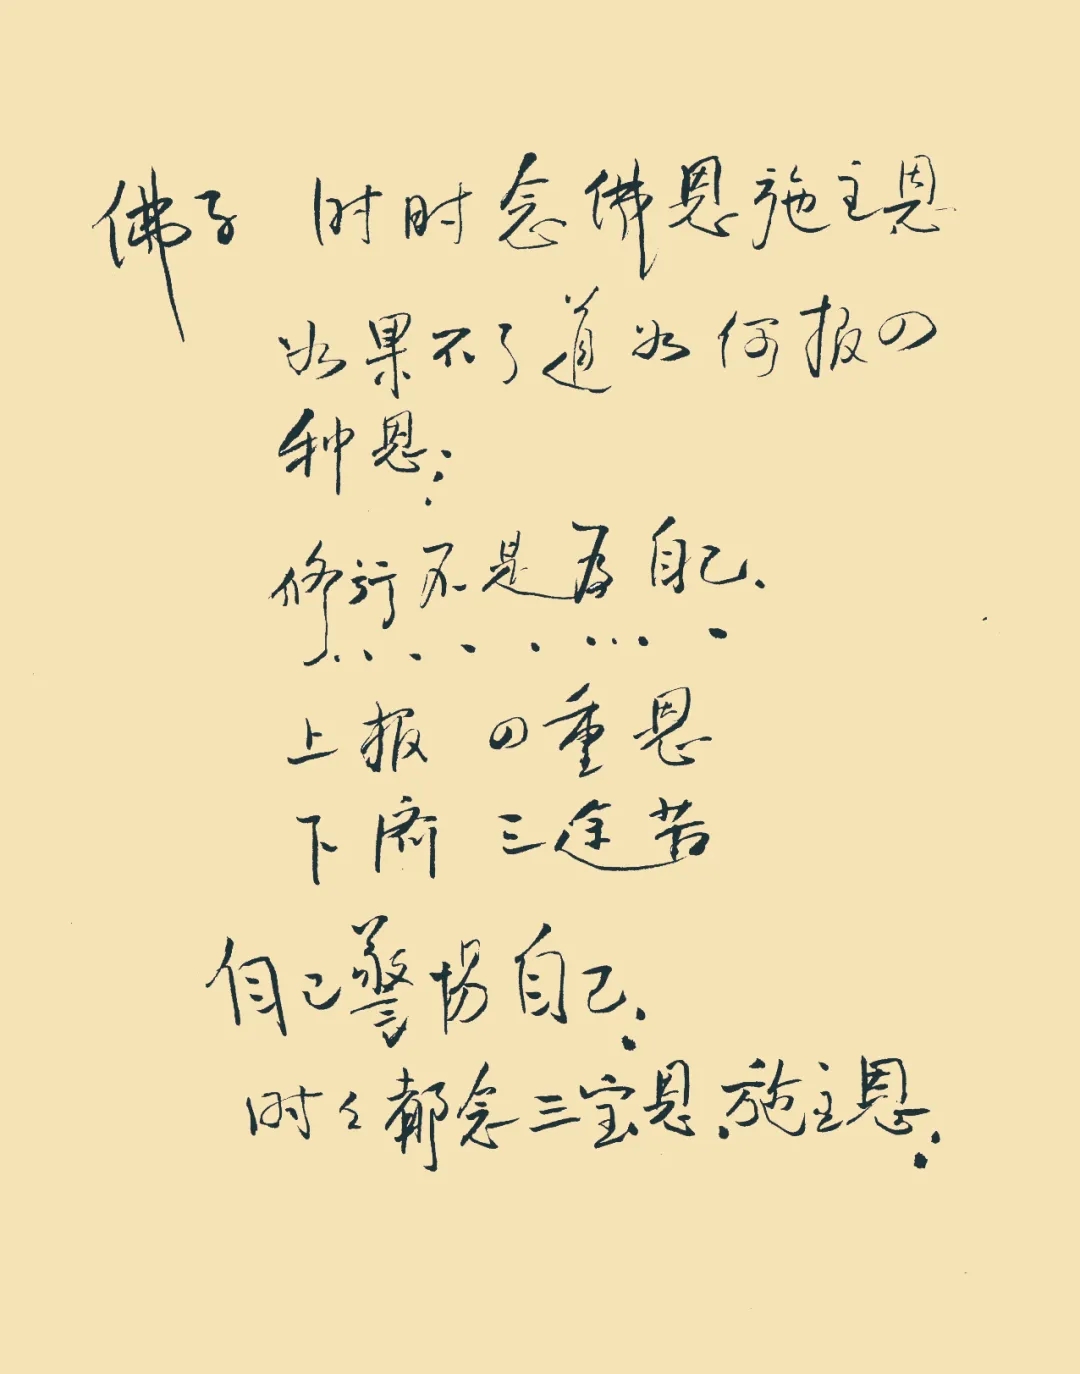 佛子 时时念佛恩施主恩
如果不了道如何报四
种恩:
修行不是为自己.
上报 四重恩
下济 三途苦
自己警惕自己.
时々都念三宝恩.施主恩.